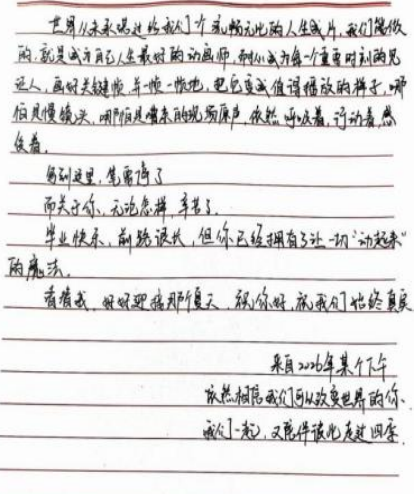 世界从未承诺过给我们一个流畅无比的人生成片，我们能做
的，就是成为自己人生最好的动画师，耐心成为每一个重要时刻的见
证人，画好关键帧，并一帧一帧地，把它变成值得播放的样子，哪
怕是慢镜头，哪怕是嘈杂的现场原声，依然呼吸着，行动着，感
受着。
写到这里，笔需停了
而关于你，无论怎样，辛苦了。
毕业快乐，前路漫长，但你已经拥有了让一切“动起来”
的魔法。
看着我，好好迎接那个夏天，祝你好，祝我们始终真实
来自2026年某个下午
依然相信我们可以改变世界的你、
我们一起，又陪伴彼此走过四季。